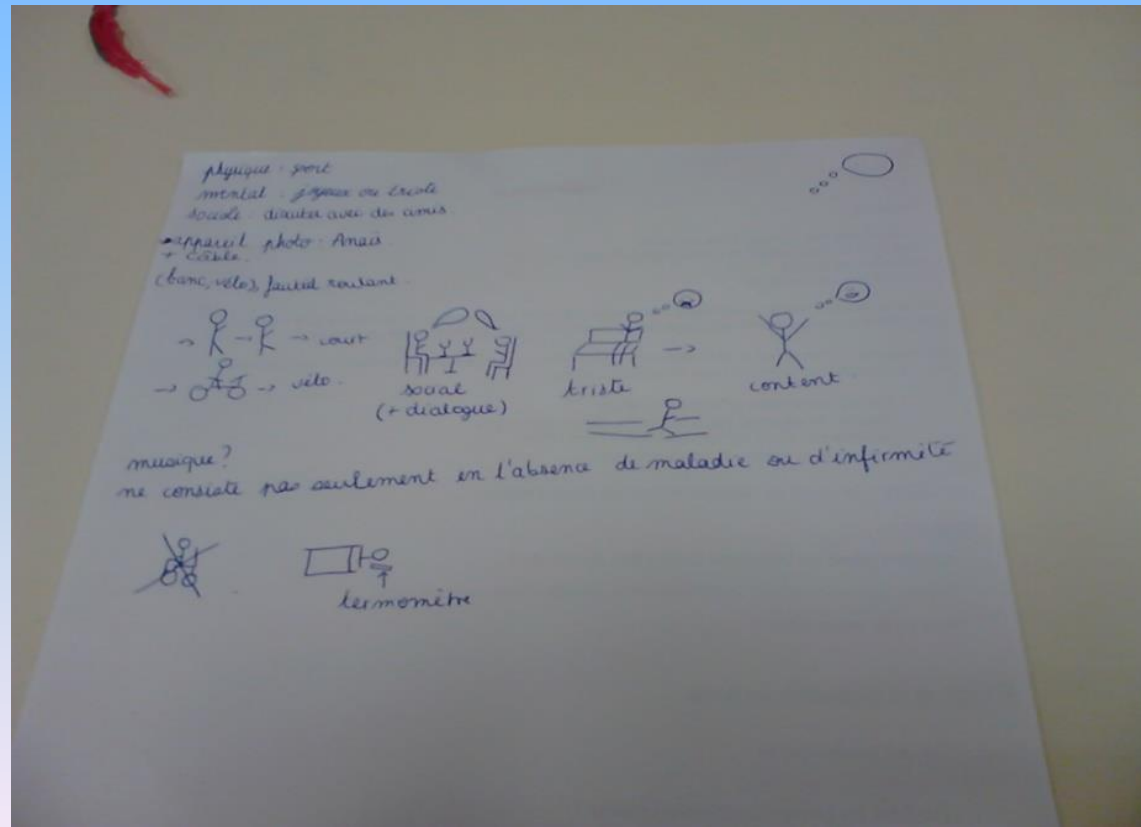 physique : sport
mental : joyeux ou triste
sociale : discuter avec des amis.
appareil photo : Anaïs
+ câble.
(banc, vélo), fauteuil roulant.
→ → court
→ → vélo.
social
(+ dialogue)
triste
→
content
musique?
ne consiste pas seulement en l'absence de maladie ou d'infirmité
termomètre